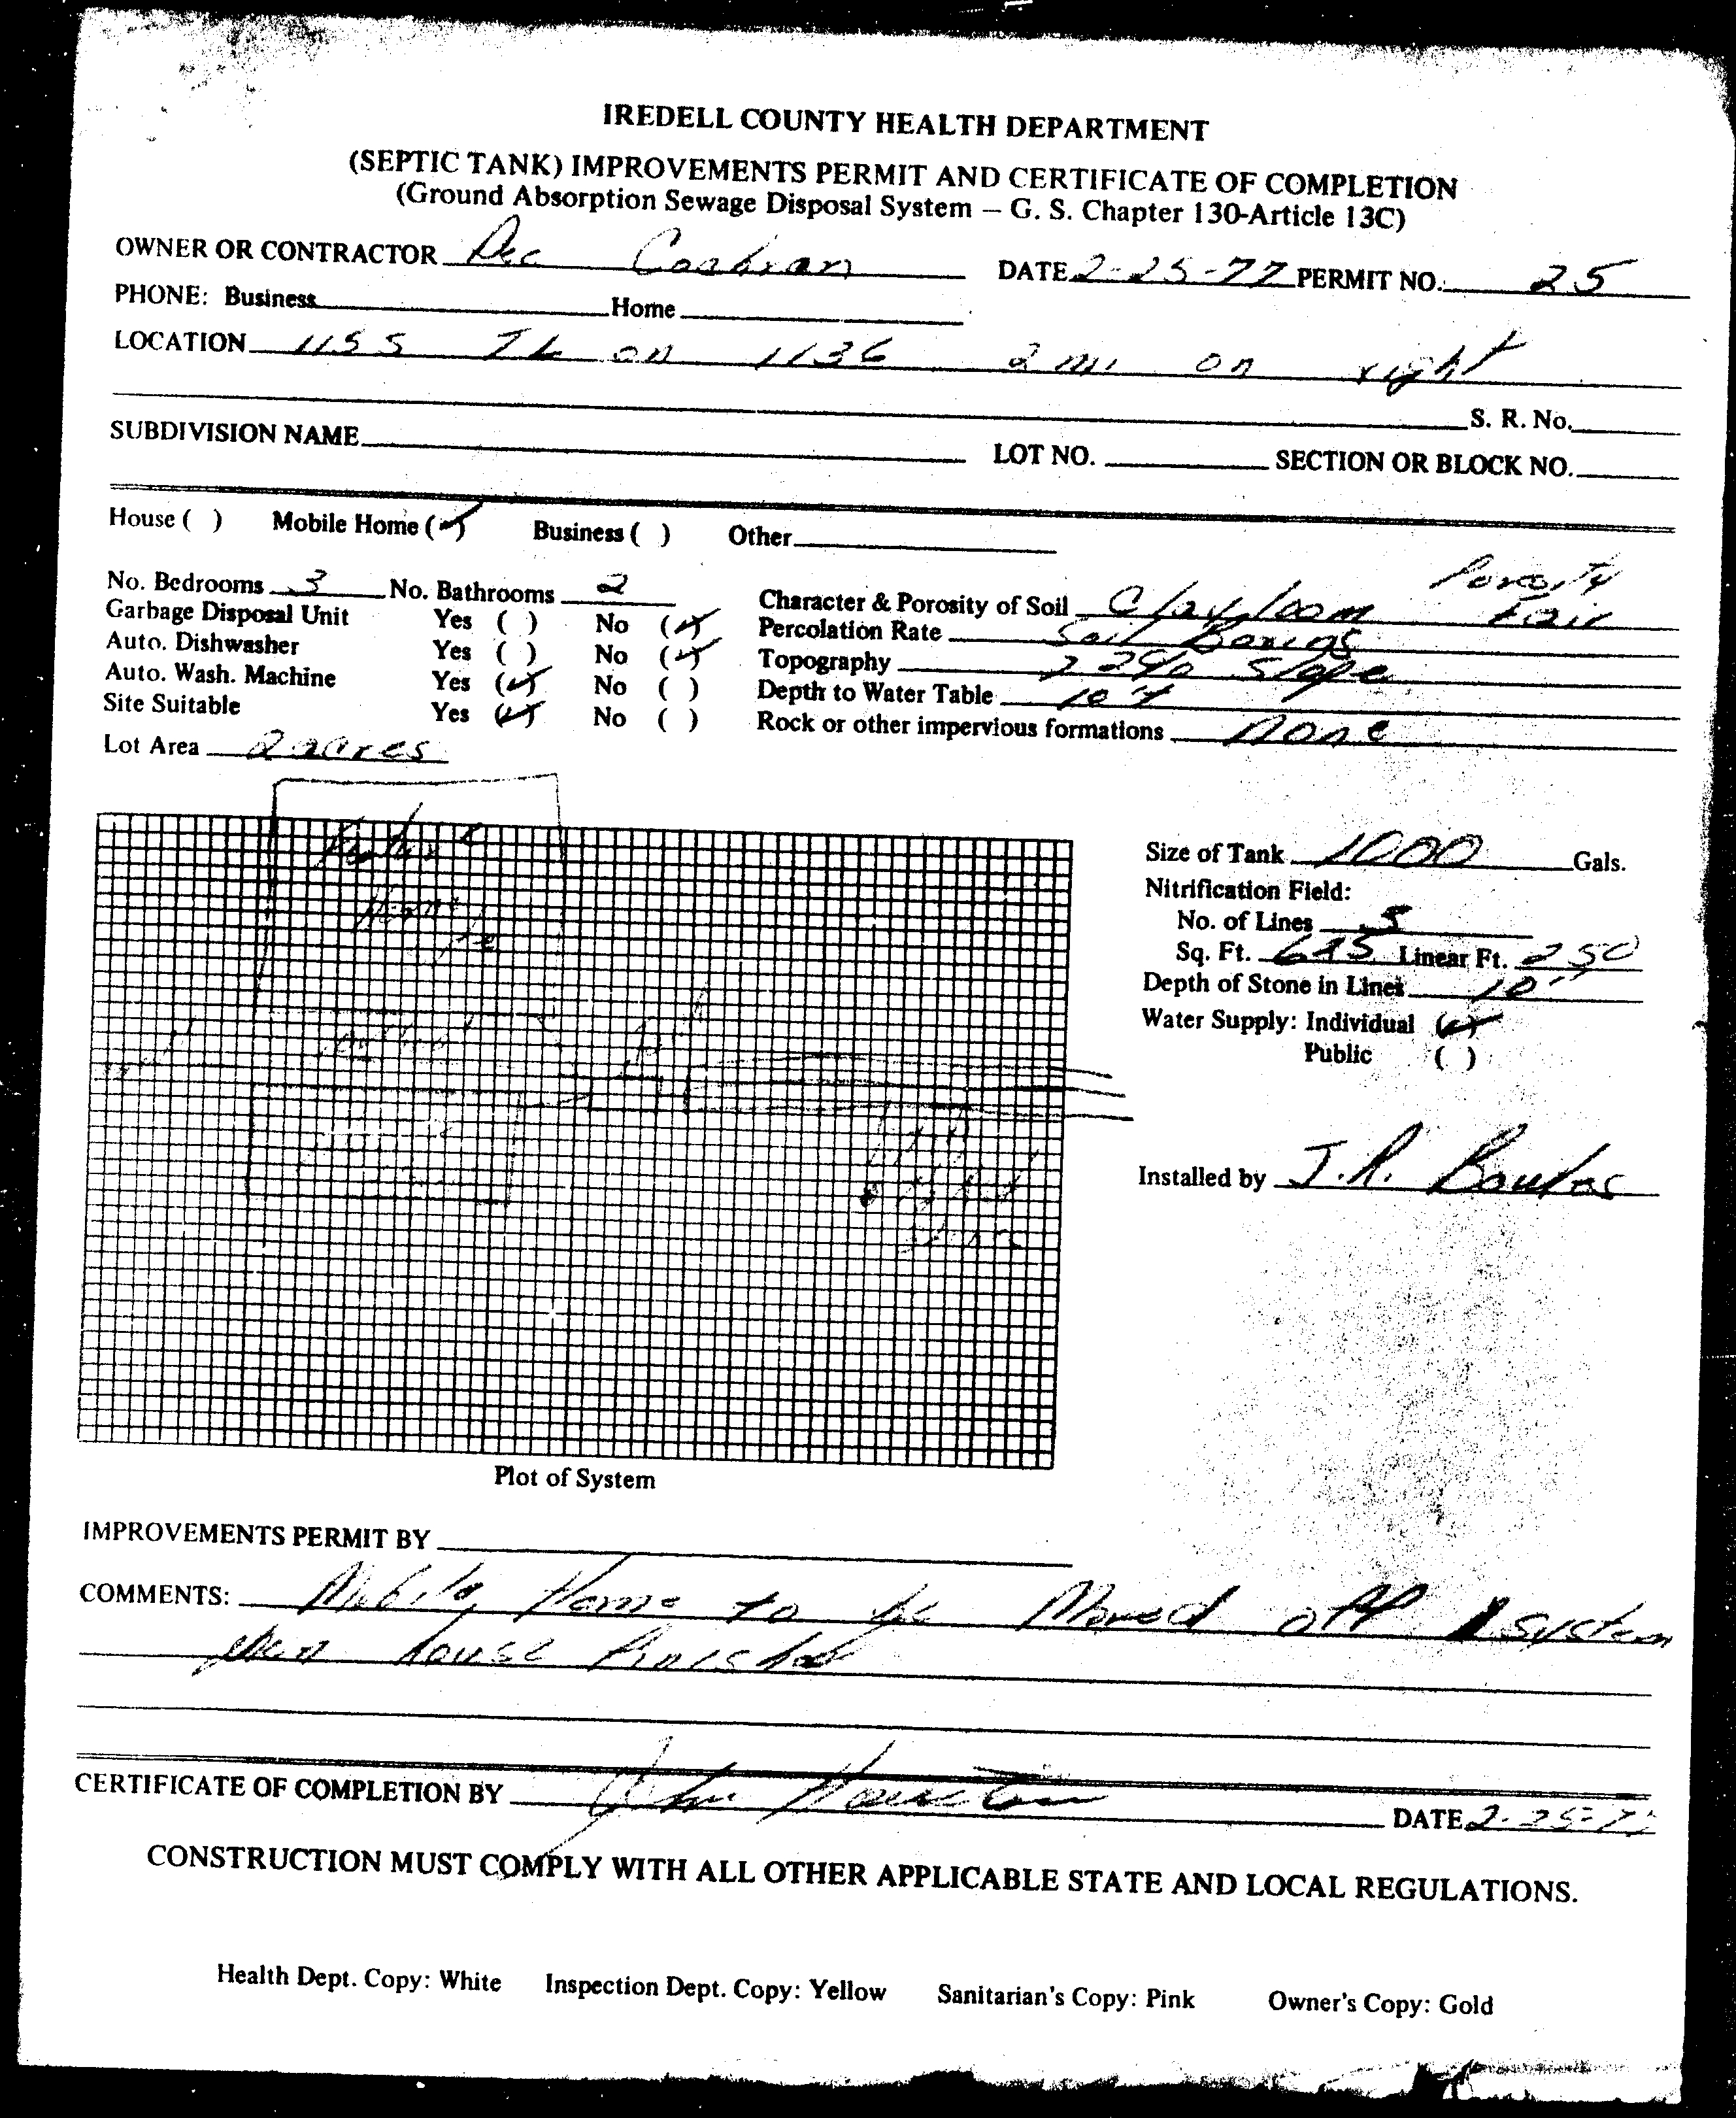 IREDELL COUNTY HEALTH DEPARTMENT
(SEPTIC TANK) IMPROVEMENTS PERMIT AND CERTIFICATE OF COMPLETION
(Ground Absorption Sewage Disposal System – G. S. Chapter 130-Article 13C)
OWNER OR CONTRACTOR DATE 2-25-77 PERMIT NO. 25
PHONE: Business Home
LOCATION 115 S TL on 1136 2 mi on right
S. R. No.
SUBDIVISION NAME LOT NO. SECTION OR BLOCK NO.
House ( ) Mobile Home (✓) Business ( ) Other
No. Bedrooms 3 No. Bathrooms 2 Character & Porosity of Soil Clay loam Porosity Fair
Garbage Disposal Unit Yes ( ) No (✓) Percolation Rate Soil Borings
Auto. Dishwasher Yes ( ) No (✓) Topography Slope
Auto. Wash. Machine Yes (✓) No ( ) Depth to Water Table
Site Suitable Yes (✓) No ( ) Rock or other impervious formations None
Lot Area 2 acres
Future
Home
Size of Tank 1000 Gals.
Nitrification Field:
No. of Lines 5
Sq. Ft. Linear Ft. 250
Depth of Stone in Lines 10"
Water Supply: Individual (✓)
Public ( )
Installed by J.R.
Plot of System
IMPROVEMENTS PERMIT BY
COMMENTS: Mobile Home to be Moved off system
when house finished
CERTIFICATE OF COMPLETION BY John Houston DATE 2-25-77
CONSTRUCTION MUST COMPLY WITH ALL OTHER APPLICABLE STATE AND LOCAL REGULATIONS.
Health Dept. Copy: White Inspection Dept. Copy: Yellow Sanitarian's Copy: Pink Owner's Copy: Gold